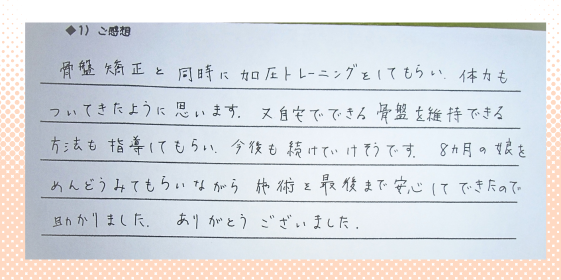 ◆1) ご感想
骨盤矯正と同時に加圧トレーニングをしてもらい、体力も
ついてきたように思います。又自宅でできる骨盤を維持できる
方法も指導してもらい、今後も続けていけそうです。8ヵ月の娘を
めんどうみてもらいながら施術を最後まで安心してできたので
助かりました。ありがとうございました。